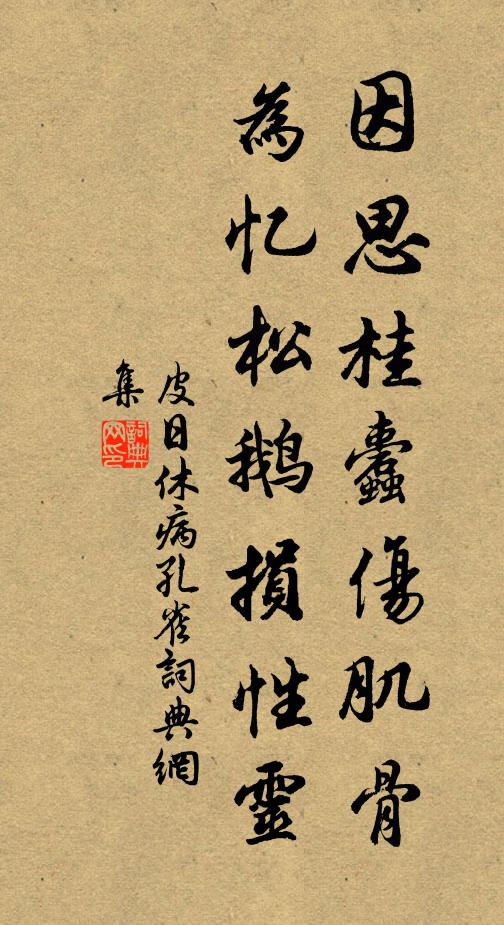 因思桂蠹傷肌骨
為忆松鹅損性靈
皮日休病孔雀詞典網
集
詞典網印